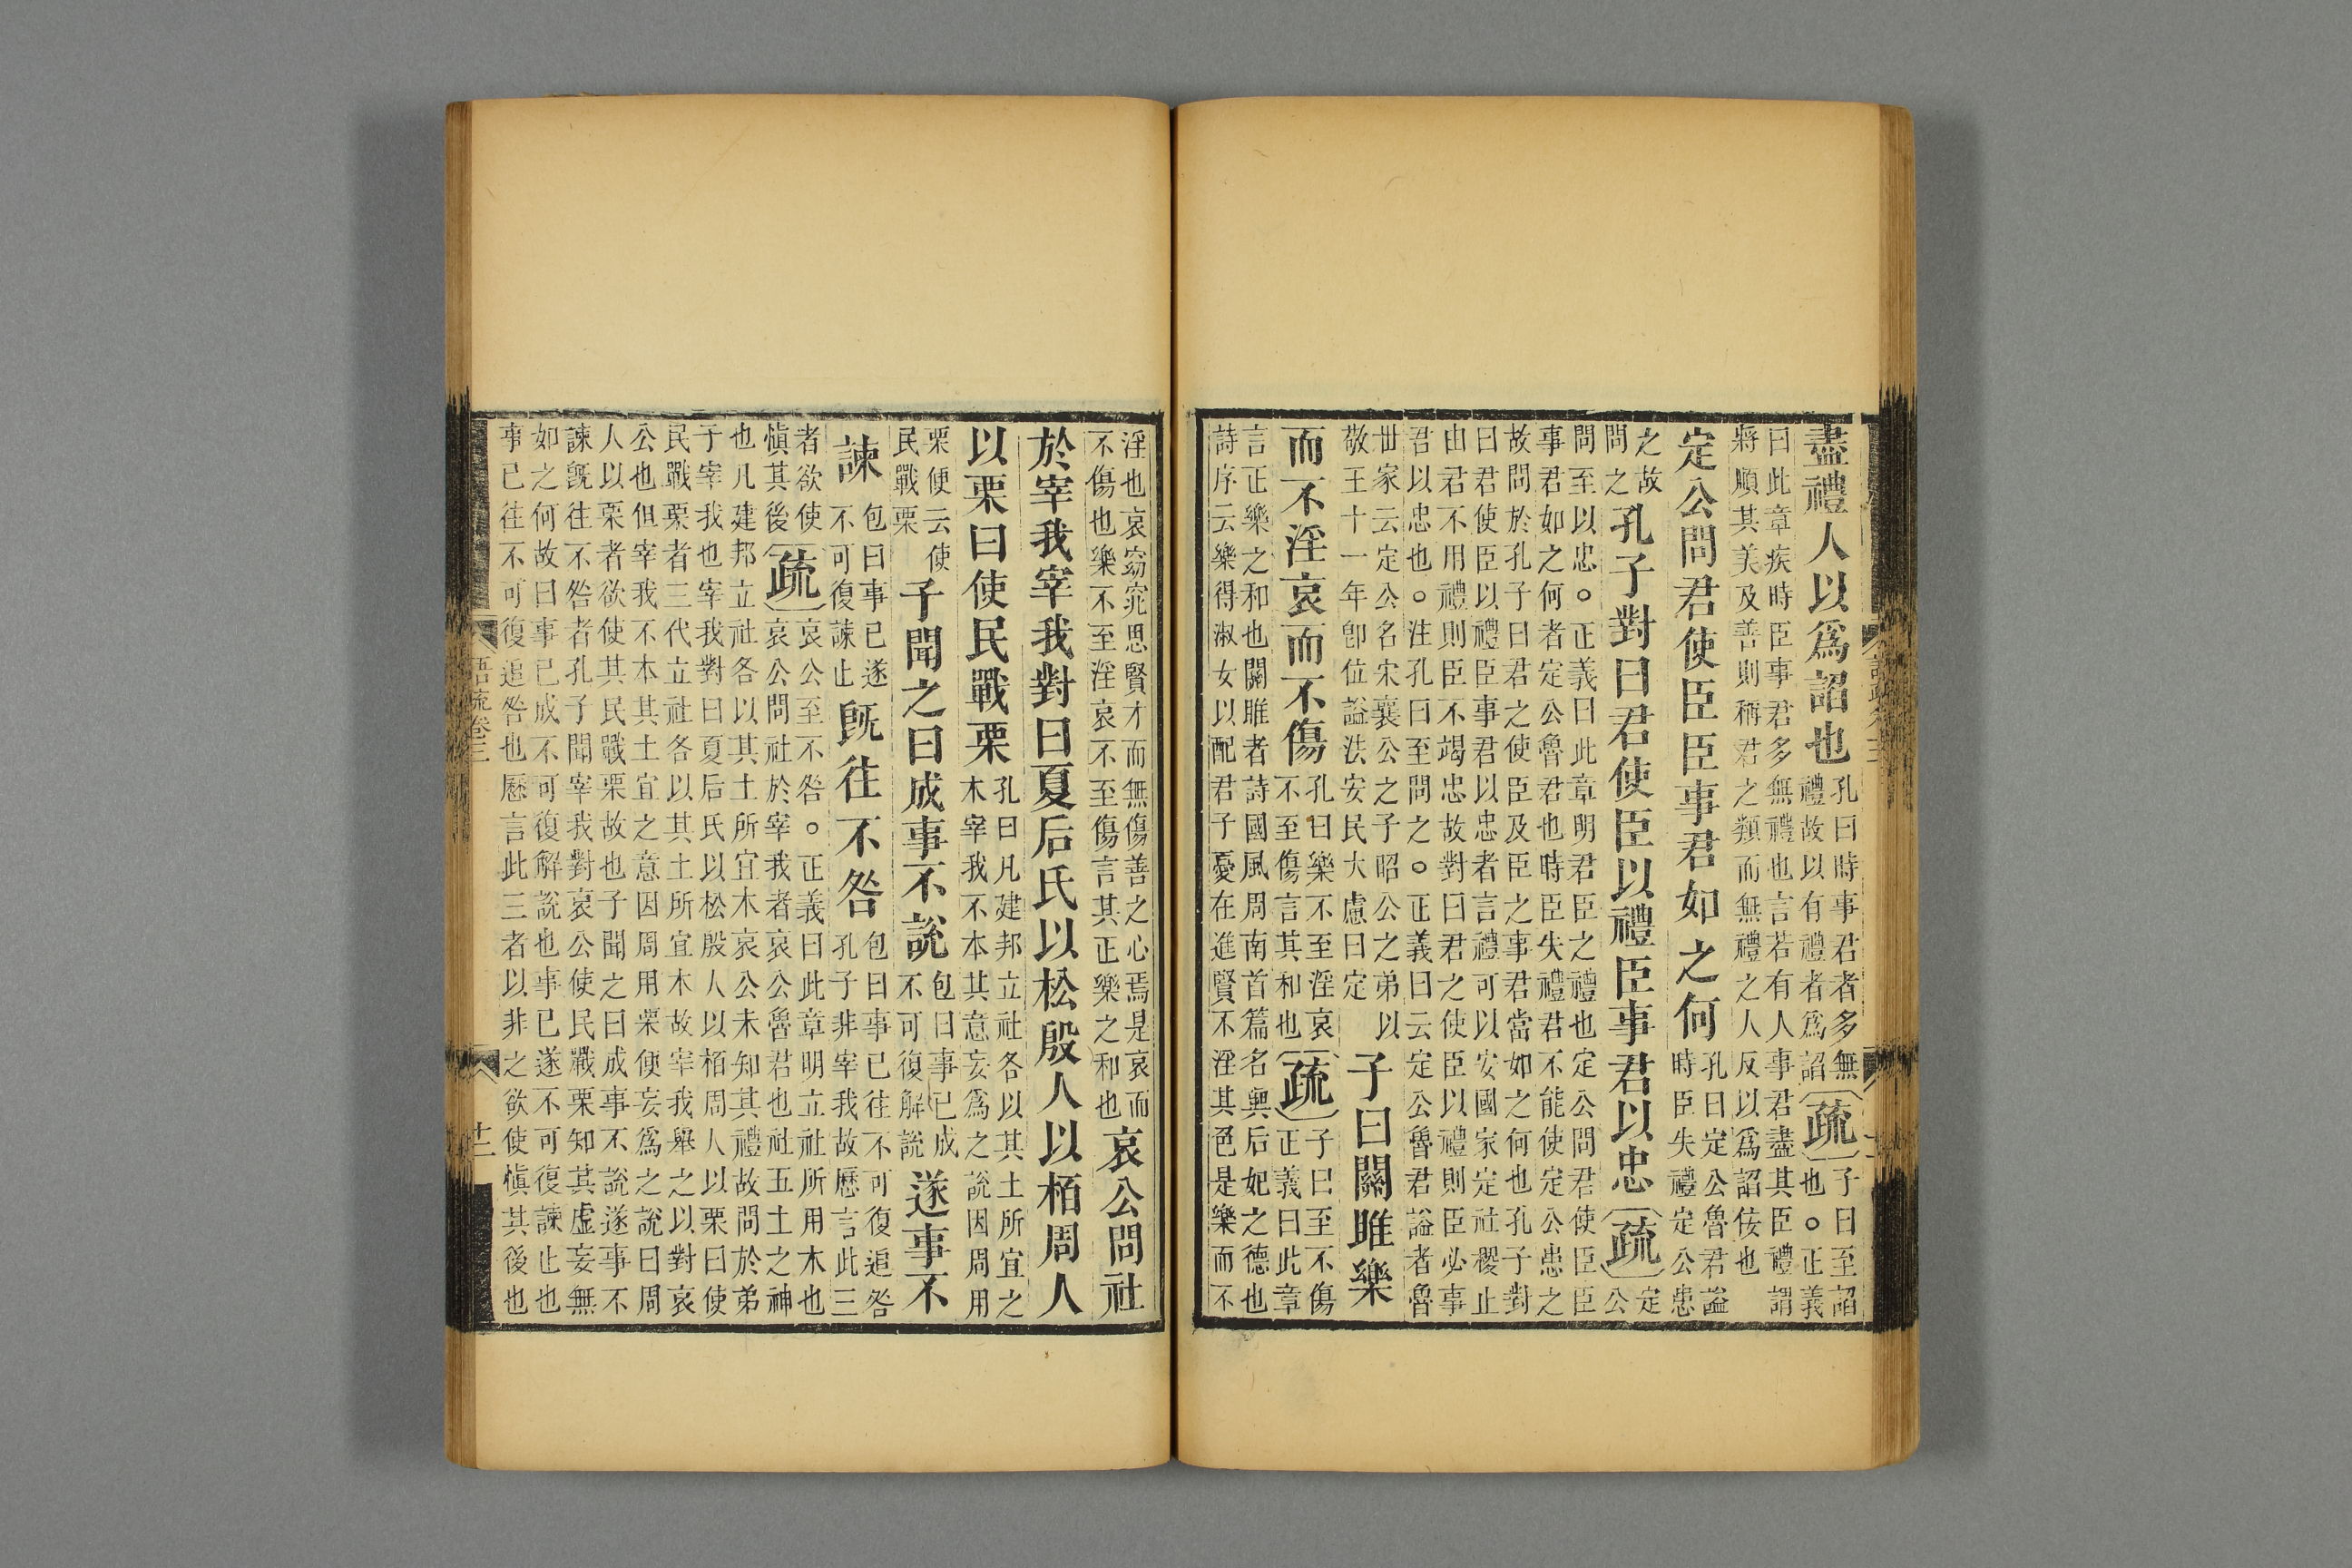 盡禮人以爲諂也孔曰時事君者多無禮故以有禮者爲諂疏子曰至諂也○正義
曰此章疾時臣事君多無禮也言若有人事君盡其臣禮謂
將順其美及善則稱君之類而無禮之人反以爲諂佞也
定公問君使臣臣事君如之何孔曰定公魯君謚時臣失禮定公患
之故問之孔子對曰君使臣以禮臣事君以忠疏定公
問至以忠○正義曰此章明君臣之禮也定公問君使臣臣
事君如之何者定公魯君也時臣失禮君不能使定公患之
故問於孔子曰君之使臣及臣之事君當如之何也孔子對
曰君使臣以禮臣事君以忠者言禮可以安國家定社稷止
由君不用禮則臣不竭忠故對曰君之使臣以禮則臣必事
君以忠也○注孔曰至問之○正義曰云定公魯君謚者魯
世家云定公名宋襄公之子昭公之弟以敬王十一年卽位謚法安民大慮曰定子曰關雎樂
而不淫哀而不傷孔曰樂不至淫哀不至傷言其和也疏子曰至不傷正義曰此章
言正樂之和也關雎者詩國風周南首篇名興后妃之德也
詩序云樂得淑女以配君子憂在進賢不淫其色是樂而不
淫也哀窈窕思賢才而無傷善之心焉是哀而不傷也樂不至淫哀不至傷言其正樂之和也哀公問社
於宰我宰我對曰夏后氏以松殷人以栢周人
以栗曰使民戰栗孔曰凡建邦立社各以其土所宜之木宰我不本其意妄爲之說因周用
栗便云使民戰栗子聞之曰成事不說包曰事已成不可復解說遂事不
諫包曰事已遂不可復諫止旣往不咎包曰事已往不可復追咎孔子非宰我故歷言此三
者欲使愼其後疏哀公至不咎○正義曰此章明立社所用木也哀公問社於宰我者哀公魯君也社五土之神
也凡建邦立社各以其土所宜木哀公未知其禮故問於弟
子宰我也宰我對曰夏后氏以松殷人以栢周人以栗曰使
民戰栗者三代立社各以其土所宜木故宰我舉之以對哀
公也但宰我不本其土宜之意因周用栗便妄爲之說曰周
人以栗者欲使其民戰栗故也子聞之曰成事不說遂事不
諫旣往不咎者孔子聞宰我對哀公使民戰栗知其虛妄無
如之何故曰事已成不可復解說也事已遂不可復諫止也
事已往不可復追咎也歷言此三者以非之欲使愼其後也
語疏卷三
十二